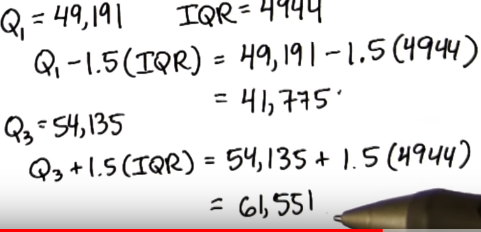 Q₁ = 49,191 IQR = 4944
Q₁ - 1.5 (IQR) = 49,191 - 1.5 (4944)
= 41,775.
Q₃ = 54,135
Q₃ + 1.5 (IQR) = 54,135 + 1.5 (4944)
= 61,551